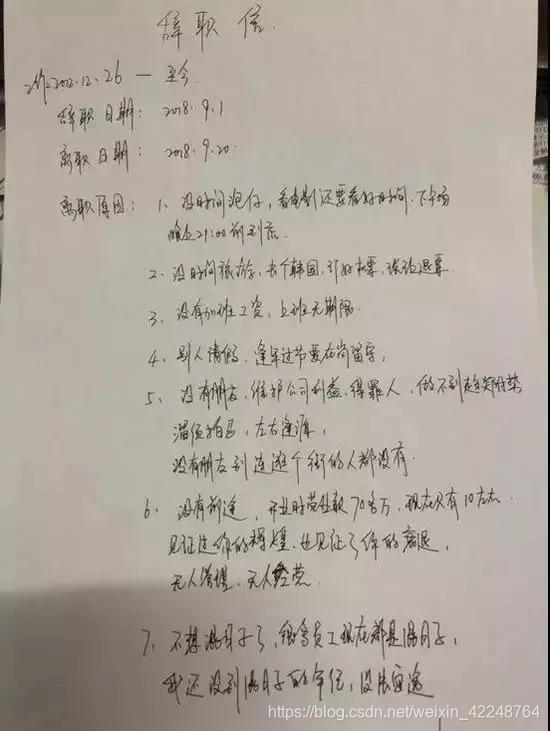 辞职信.
2012.12.26 — 至今.
辞职日期: 2018.9.1
离职日期: 2018.9.20.
离职原因: 1、没时间泡仔,看电影还要看好时间.下午场
晚上21:00前到店.
2、没时间旅游,去个韩国,订好机票,谈论退票.
3、没有加班工资,上班无期限.
4、别人请假,逢年过节要在岗留守,
5、没有朋友,维护公司利益,得罪人,做不到趋炎附势
溜须拍马,左右逢源,
没有朋友到连逛个街的人都没有.
6、没有前途,开业时营业额70多万,现在只有10左右.
见证过你的辉煌,也见证了你的衰退,
无人管理,无人经营.
7、不想混日子了,很多员工现在都是混日子,
我还没到混日子的年纪,没法通途
https://blog.csdn.net/weixin_42248764